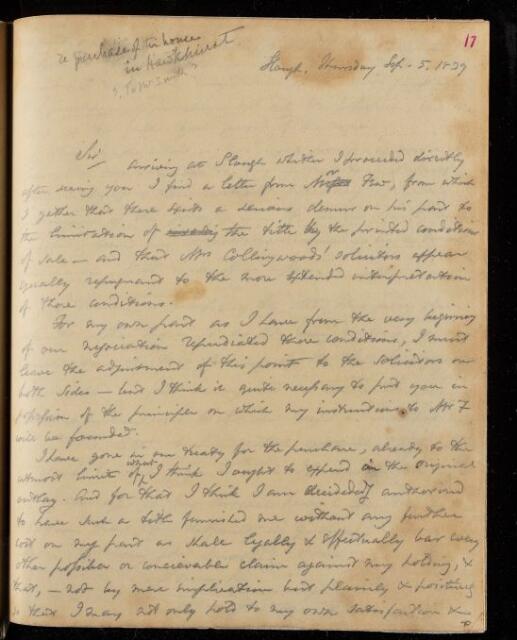 re purchase of the house
in Hawkhurst
17
Slough, Thursday Sep. 5, 1839
Sir
Arriving at Slough whither I proceeded directly
after seeing you I find a letter from Mr Few, from which
I gather that there exists a serious demur on his part to
the limitation of the title by the printed conditions
of sale – and that Mrs Collingwoods' solicitors appear
equally repugnant to the more extended interpretation
of those conditions.
For my own part as I have from the very beginning
of our negociation repudiated those conditions, I must
leave the adjustment of this point to the solicitors on
both sides – but I think it quite necessary to put you in
possession of the principles on which my instructions to Mr F
will be founded.
I have gone in our treaty for the purchase, already to the
utmost limit of what I think I ought to expend in the original
outlay. And for that I think I am decidedly authorised
to have such a title furnished me without any further
cost on my part as shall legally & effectually bar every
other possible or conceivable claim against my holding, &
that, – not by mere implication but plainly & positively
so that I may not only hold to my own satisfaction &